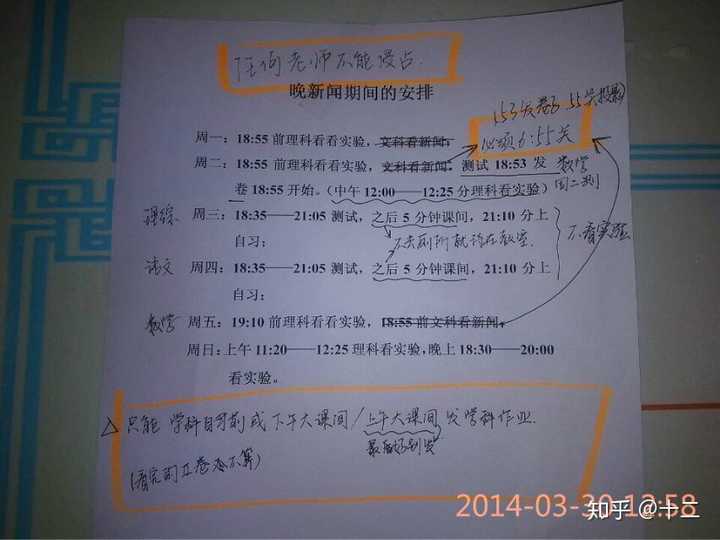 任何老师不能侵占.
晚新闻期间的安排
(53发卷子 55关投影)
必须 6:55关
周一: 18:55 前理科看看实验, 文科看新闻,
周二: 18:55 前理科看看实验, 文科看新闻. 测试 18:53 发 数学
卷 18:55 开始。(中午 12:00——12:25 分理科看实验) 周二测
理综 周三: 18:35——21:05 测试, 之后 5 分钟课间, 21:10 分上
自习; 不去厕所就待在教室. 不看实验
语文 周四: 18:35——21:05 测试, 之后 5 分钟课间, 21:10 分上
自习;
数学 周五: 19:10 前理科看看实验, 18:55 前文科看新闻,
周日: 上午 11:20——12:25 理科看实验, 晚上 18:30——20:00
看实验。
△ 只能 学科自习前或下午大课间/上午大课间 发学科作业.
最好别发
2014-03-30 12:58
知乎 @十二